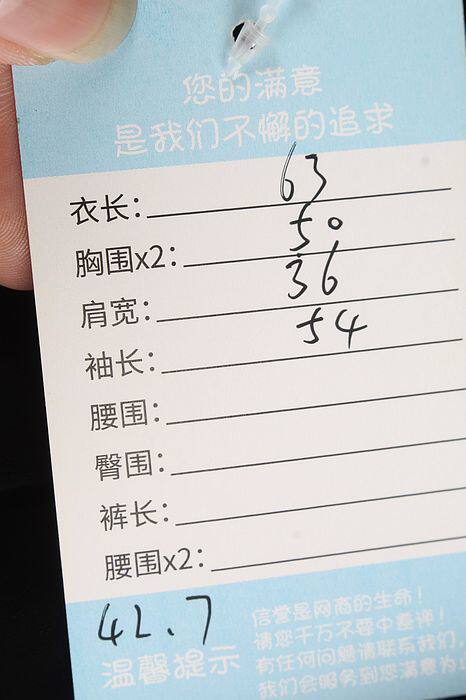 您的满意
是我们不懈的追求
衣长: 63
胸围x2: 50
肩宽: 36
袖长: 54
腰围:
臀围:
裤长:
腰围x2:
42.7
温馨提示
信誉是网商的生命!
请您千万不要中差评!
有任何问题请联系我们,
我们会服务到您满意为止